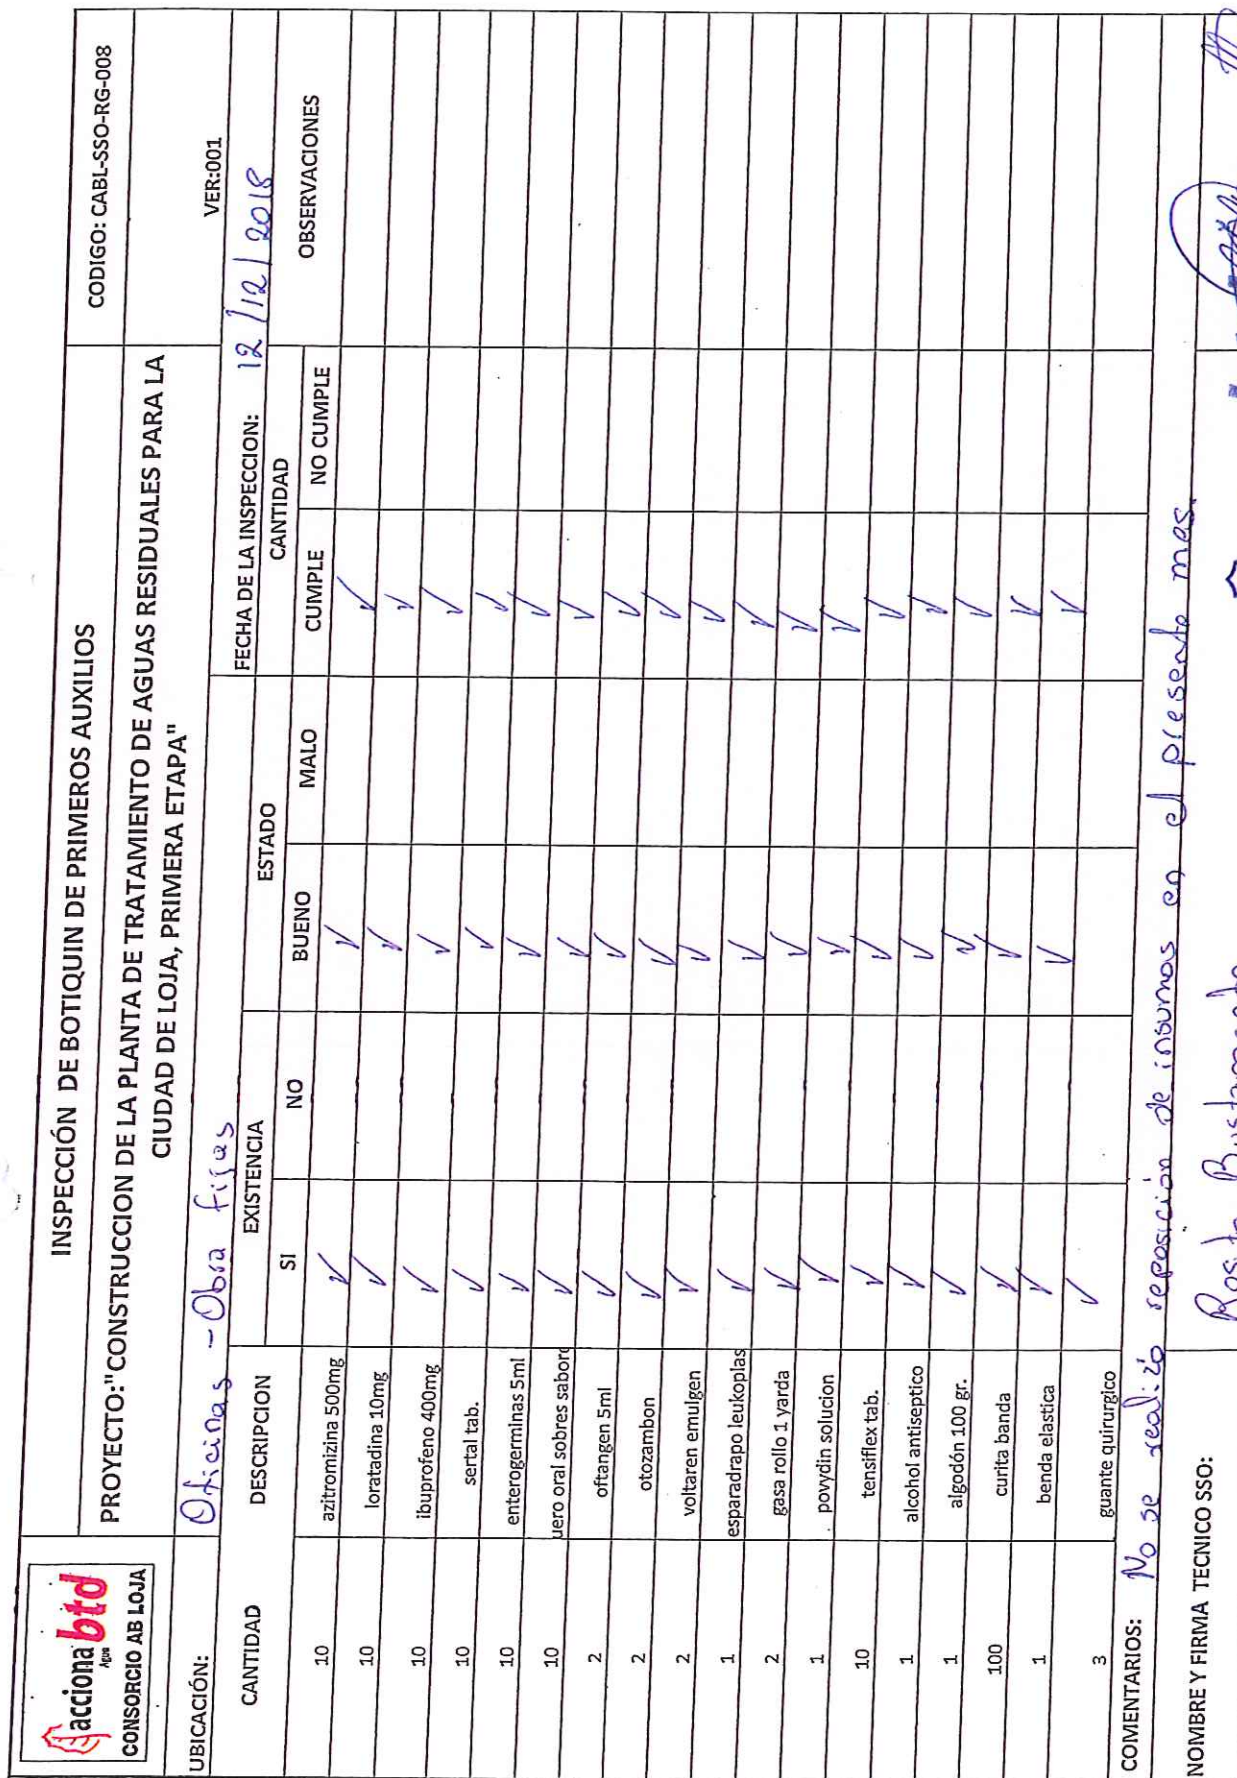 acciona btd
Agua
CONSORCIO AB LOJA
INSPECCIÓN DE BOTIQUIN DE PRIMEROS AUXILIOS
CODIGO: CABL-SSO-RG-008
PROYECTO:"CONSTRUCCION DE LA PLANTA DE TRATAMIENTO DE AGUAS RESIDUALES PARA LA
CIUDAD DE LOJA, PRIMERA ETAPA"
VER:001
UBICACIÓN: Oficinas - Obra fijas FECHA DE LA INSPECCION: 12/12/2018
CANTIDAD DESCRIPCION EXISTENCIA ESTADO CANTIDAD OBSERVACIONES
SI NO BUENO MALO CUMPLE NO CUMPLE
10 azitromizina 500mg ✓ ✓ ✓
10 loratadina 10mg ✓ ✓ ✓
10 ibuprofeno 400mg ✓ ✓ ✓
10 sertal tab. ✓ ✓ ✓
10 enterogerminas 5ml ✓ ✓ ✓
10 uero oral sobres sabore ✓ ✓ ✓
2 oftangen 5ml ✓ ✓ ✓
2 otozambon ✓ ✓ ✓
2 voltaren emulgen ✓ ✓ ✓
1 esparadrapo leukoplas ✓ ✓ ✓
2 gasa rollo 1 yarda ✓ ✓ ✓
1 povydin solucion ✓ ✓ ✓
10 tensiflex tab. ✓ ✓ ✓
1 alcohol antiseptico ✓ ✓ ✓
1 algodón 100 gr. ✓ ✓ ✓
100 curita banda ✓ ✓ ✓
1 benda elastica ✓ ✓ ✓
3 guante quirurgico ✓
COMENTARIOS: No se realizó reposición de insumos en el presente mes.
NOMBRE Y FIRMA TECNICO SSO: Rosita Bustamante